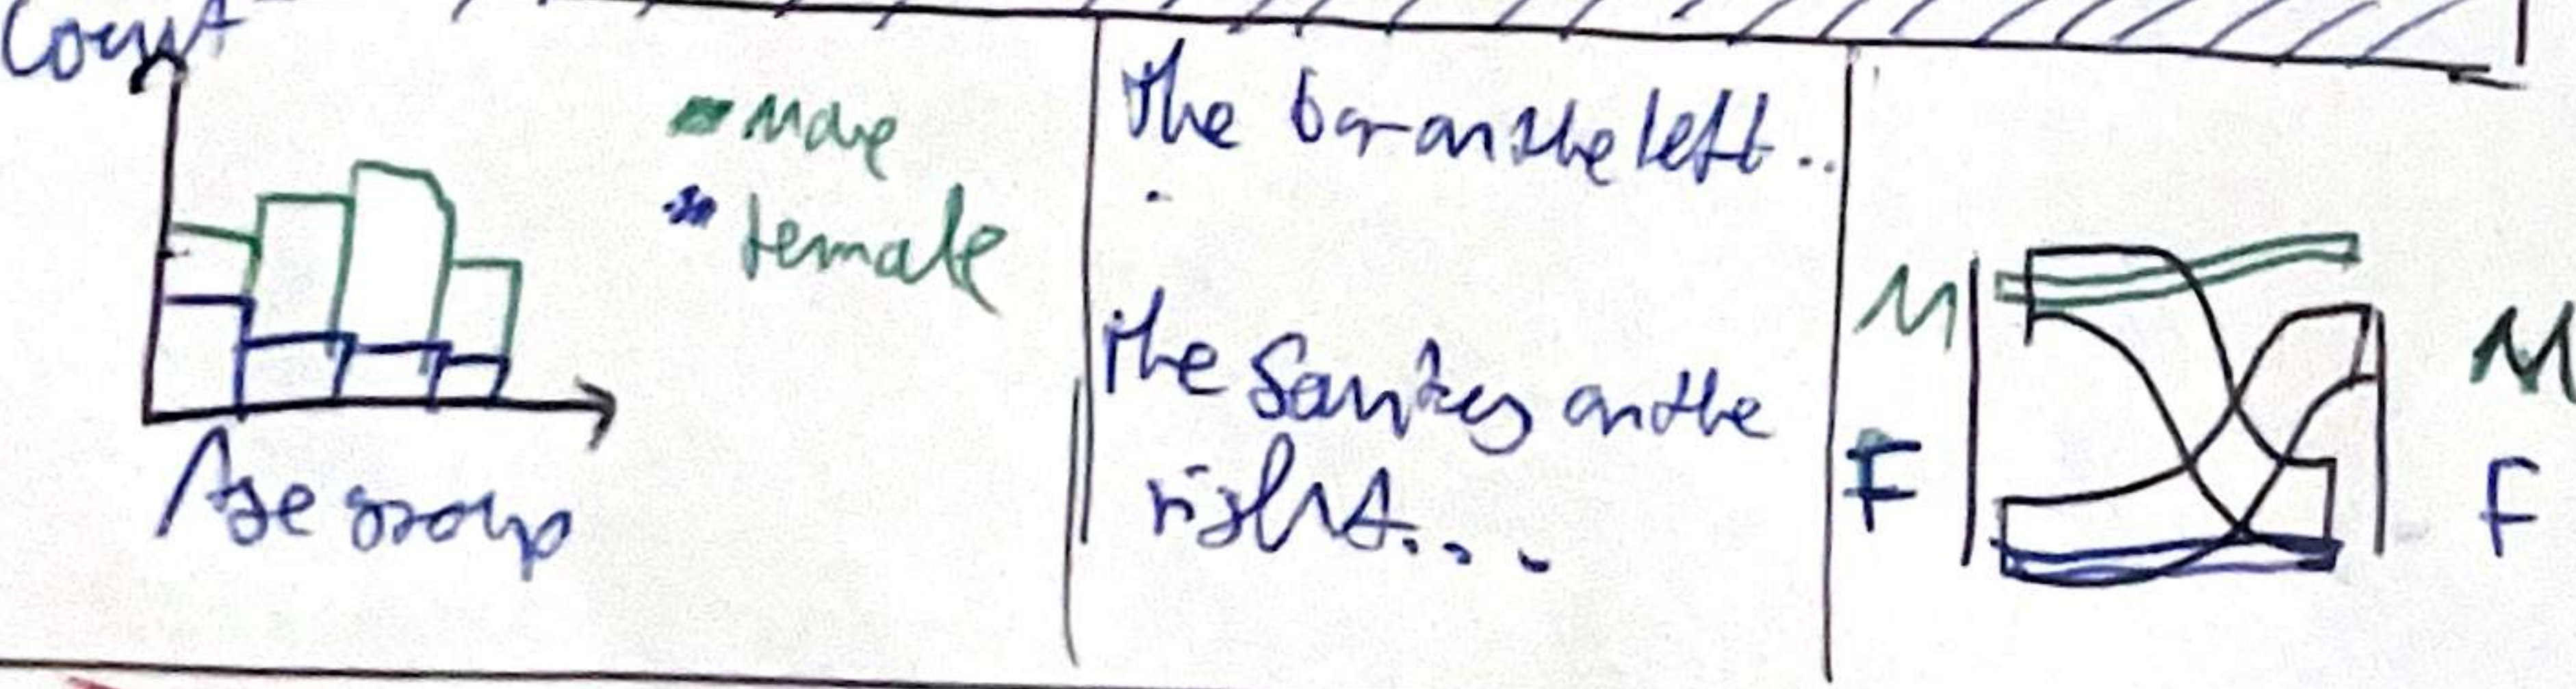 Count
Male
female
Age group
The bar on the left..
The Sankey on the
right...
M
F
M
F